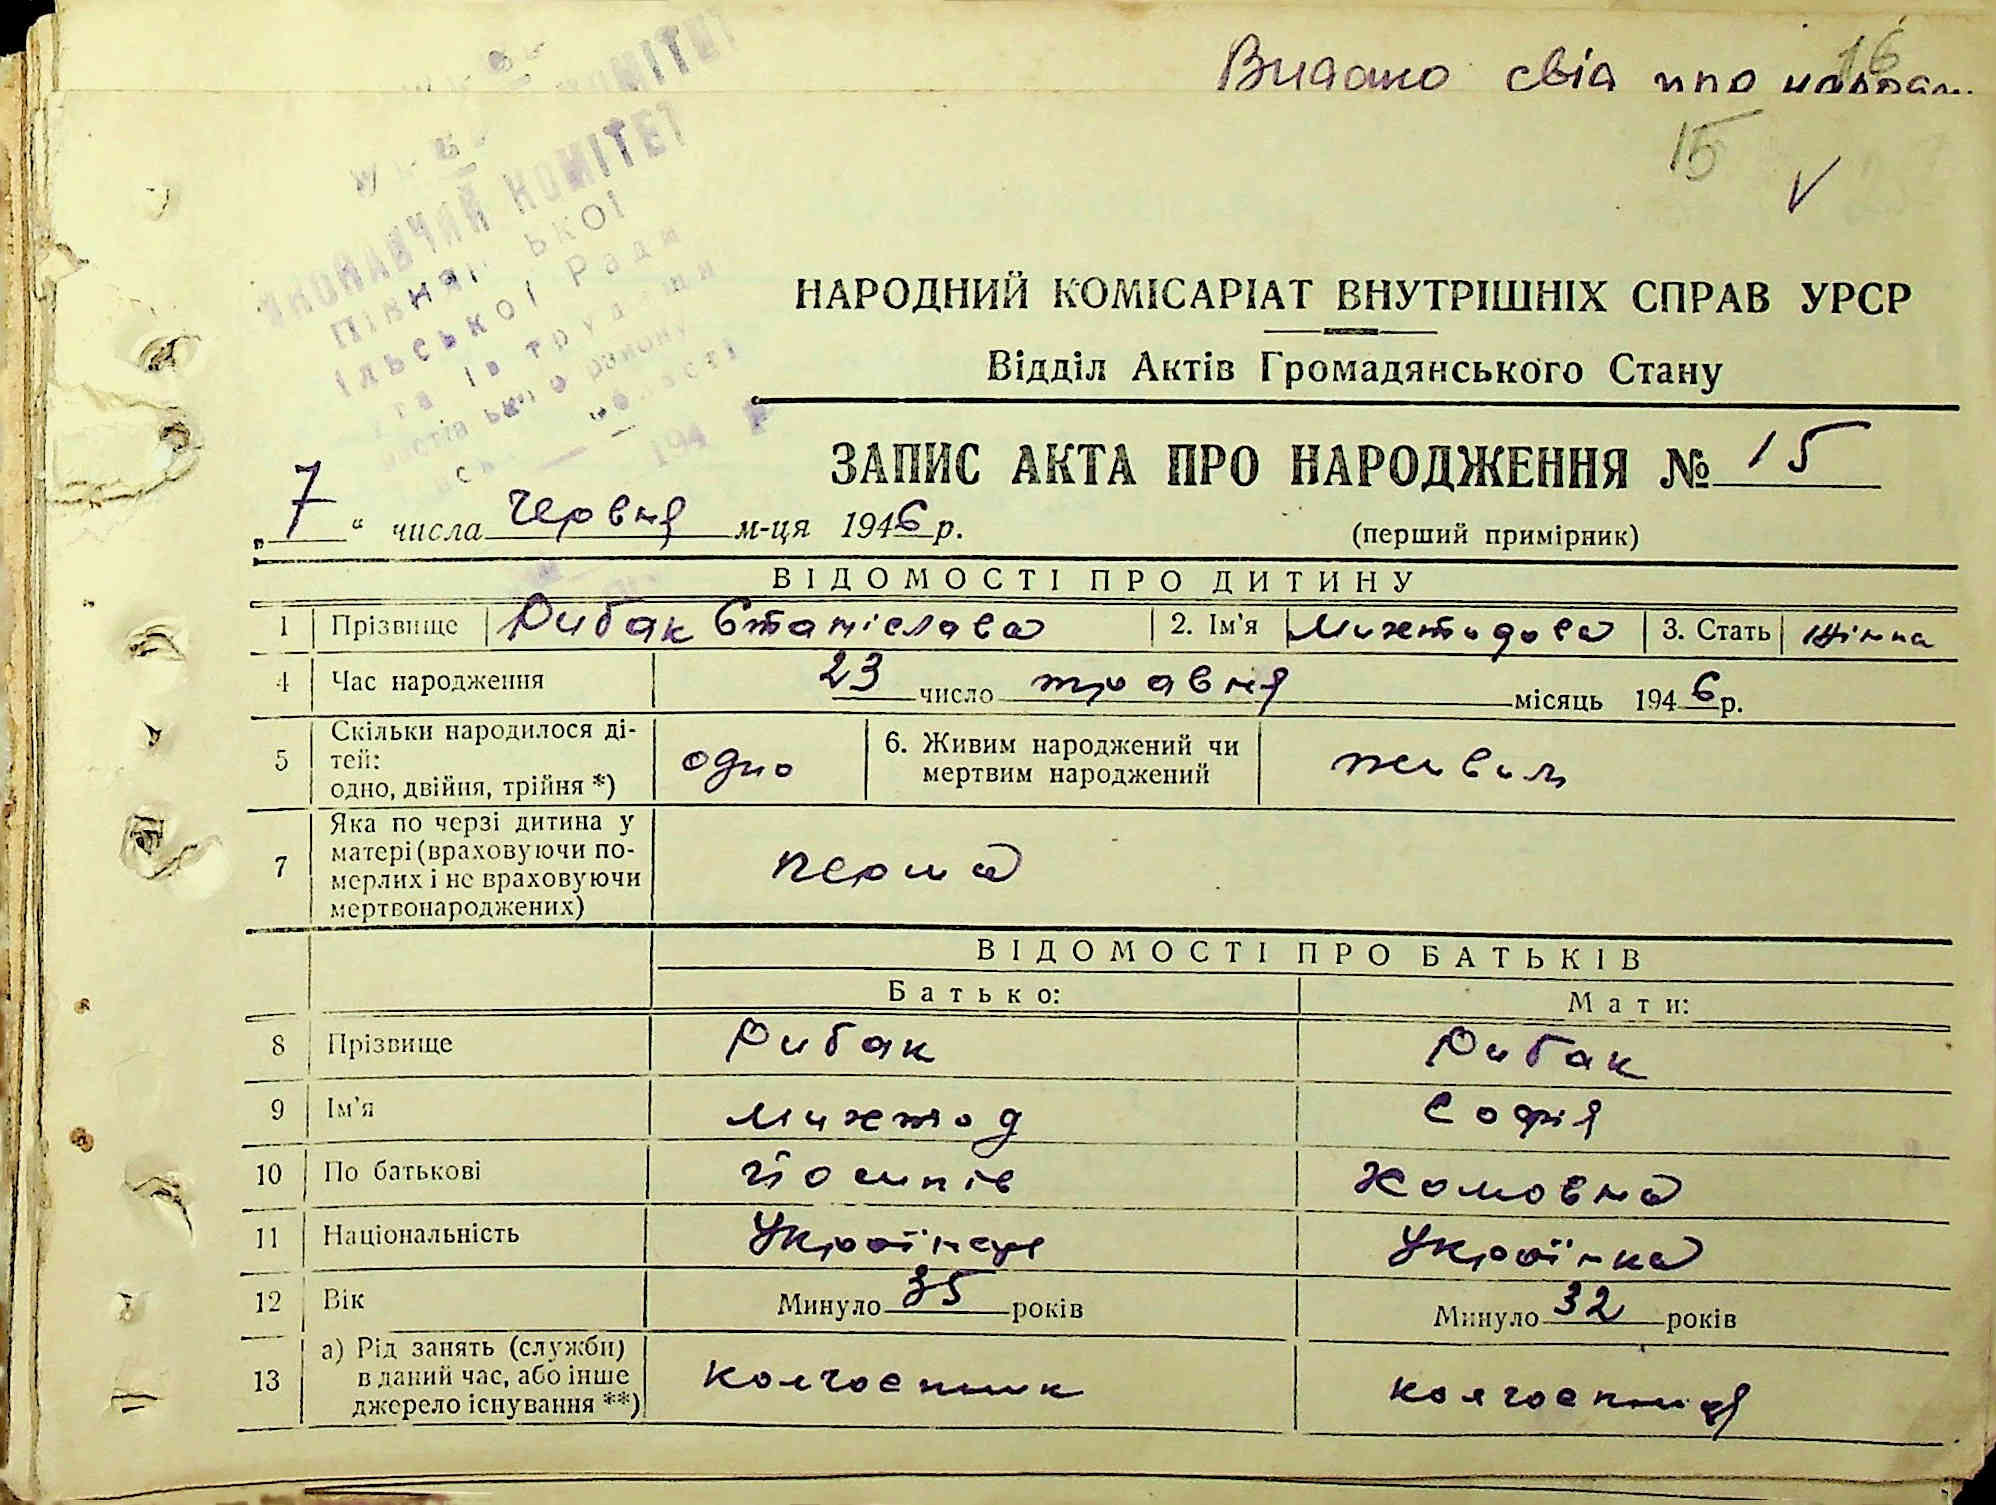 Видано свід про народж
16
15
НАРОДНИЙ КОМІСАРІАТ ВНУТРІШНІХ СПРАВ УРСР
Відділ Актів Громадянського Стану
ЗАПИС АКТА ПРО НАРОДЖЕННЯ № 15
„7“ числа червня м-ця 1946 р.
(перший примірник)
ВІДОМОСТІ ПРО ДИТИНУ
1 Прізвище Рибак Станіслава 2. Ім'я Михтодова 3. Стать жінка
4 Час народження 23 число травня місяць 1946 р.
5 Скільки народилося ді-
тей:
одно, двійня, трійня *) одно 6. Живим народжений чи
мертвим народжений живим
7 Яка по черзі дитина у
матері (враховуючи по-
мерлих і не враховуючи
мертвонароджених) перша
ВІДОМОСТІ ПРО БАТЬКІВ
Батько: Мати:
8 Прізвище Рибак Рибак
9 Ім'я Михтод Софія
10 По батькові Йосипів Хомовна
11 Національність Українець Українка
12 Вік Минуло 35 років Минуло 32 років
13 а) Рід занять (служби)
в даний час, або інше
джерело існування **) колгоспник колгоспниця